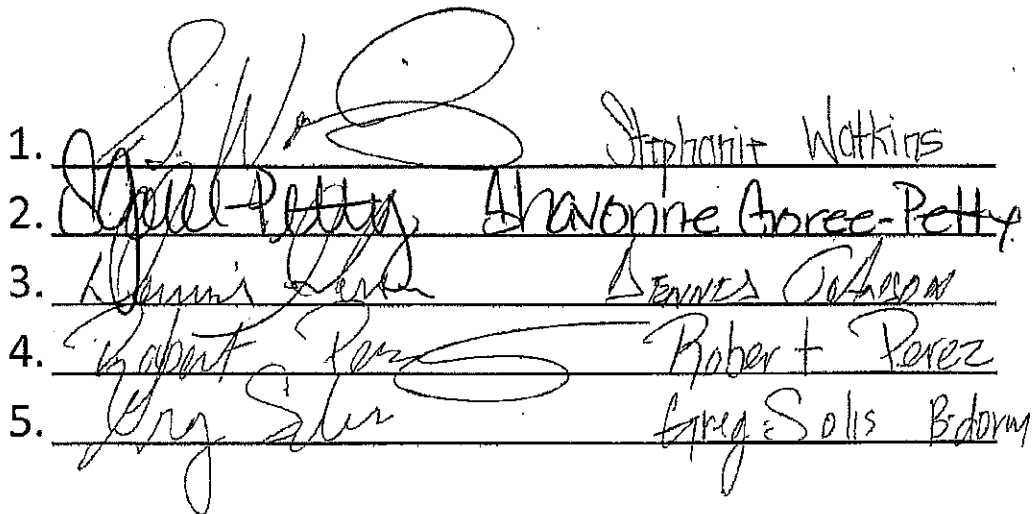 1. Stephanie Watkins
2. Petty Shavonne Goree-Petty
3. Dennis Dennis Johnson
4. Robert Perez Robert Perez
5. Greg Solis Greg Solis B-dorm